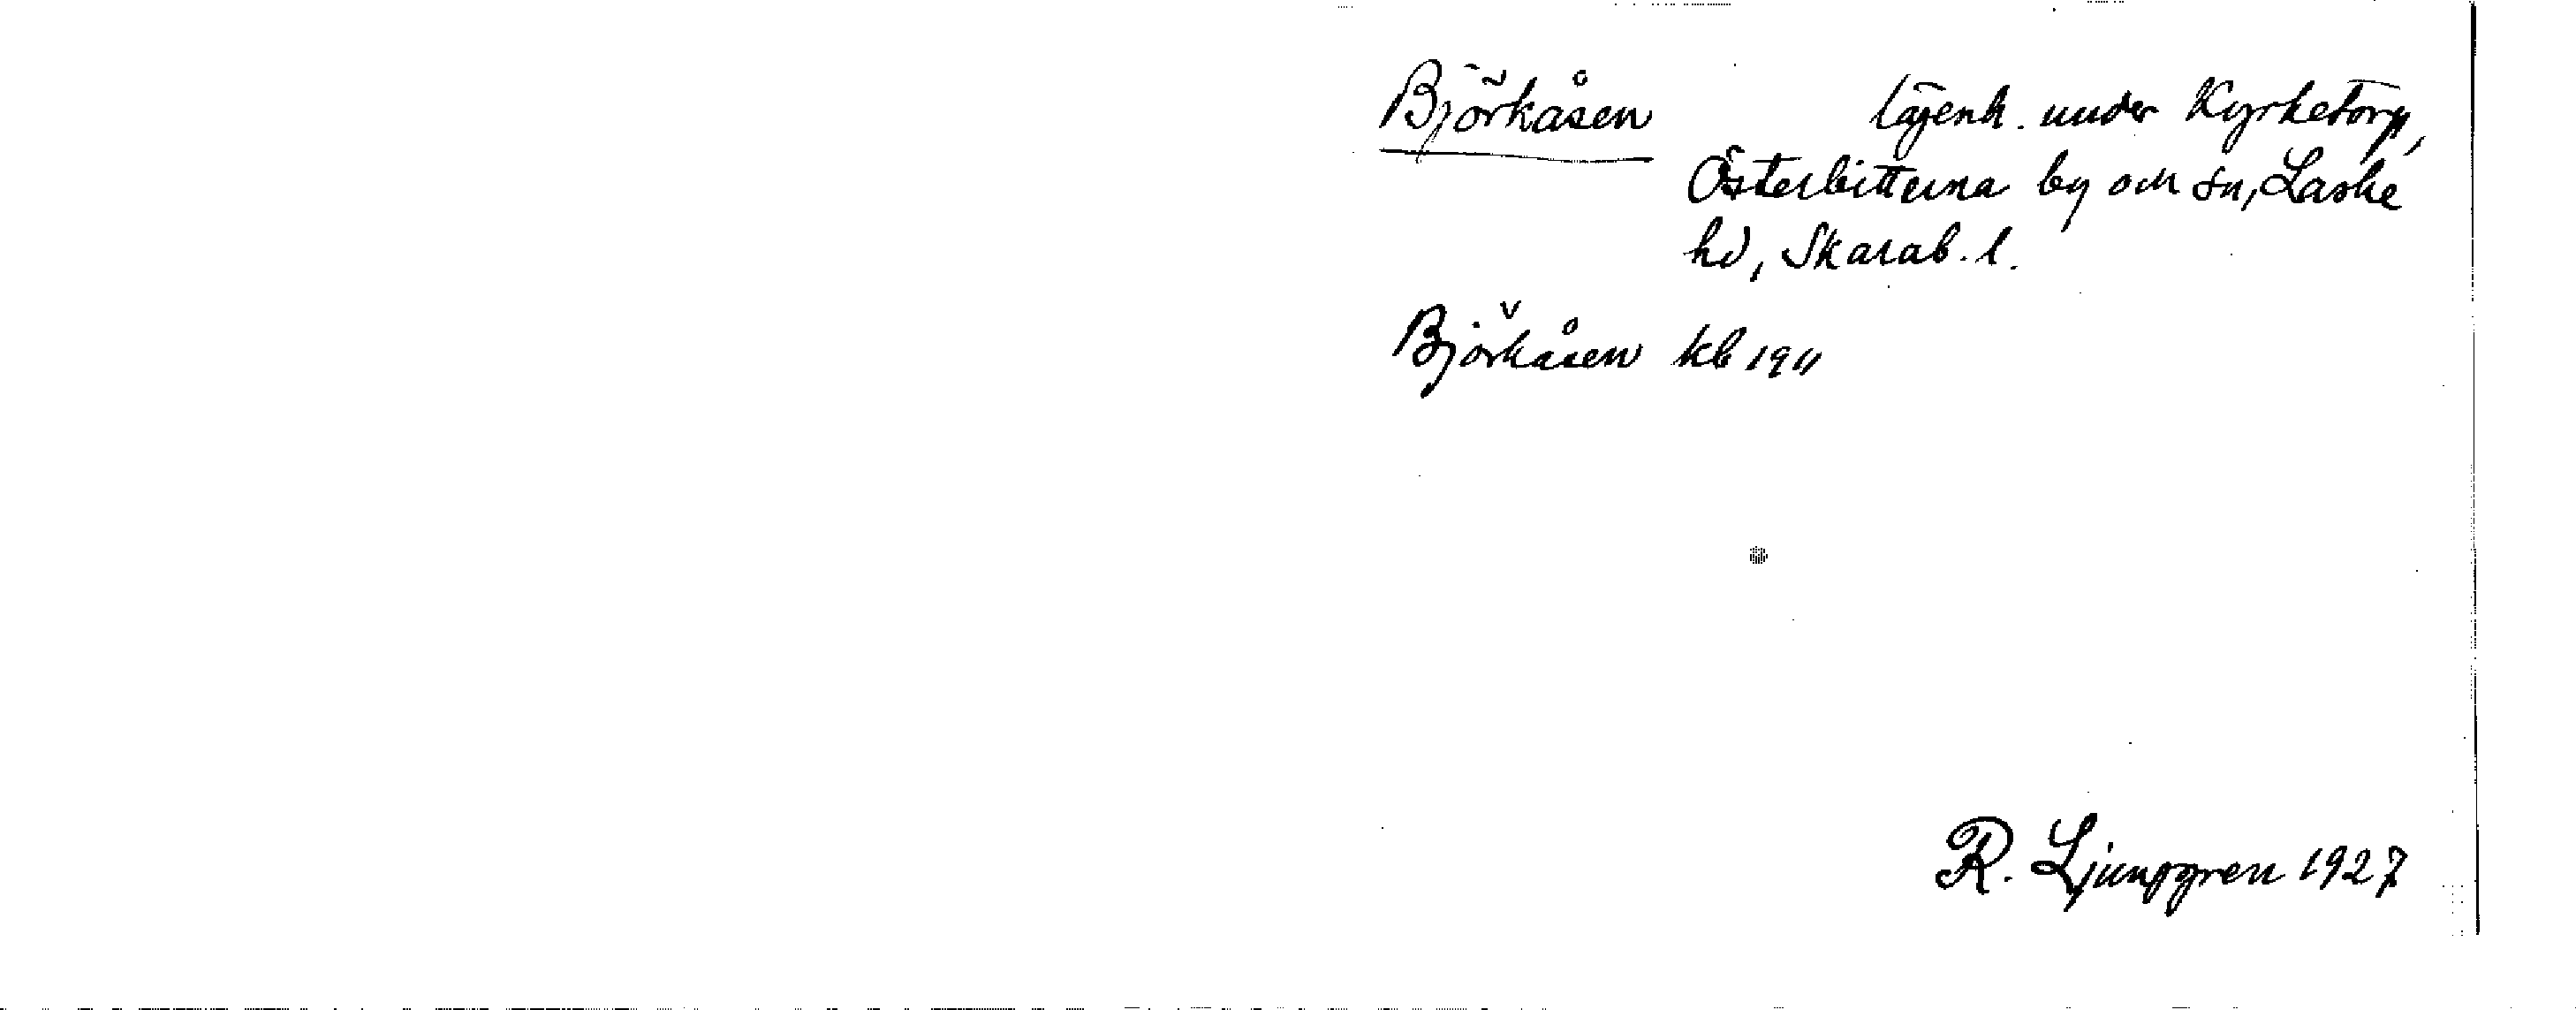 Björkåsen lägenh. under Kyrketorp,
Österbitterna by och sn, Laske
hd, Skarab. l.
Björkåsen kb 1911
R. Ljunggren 1927